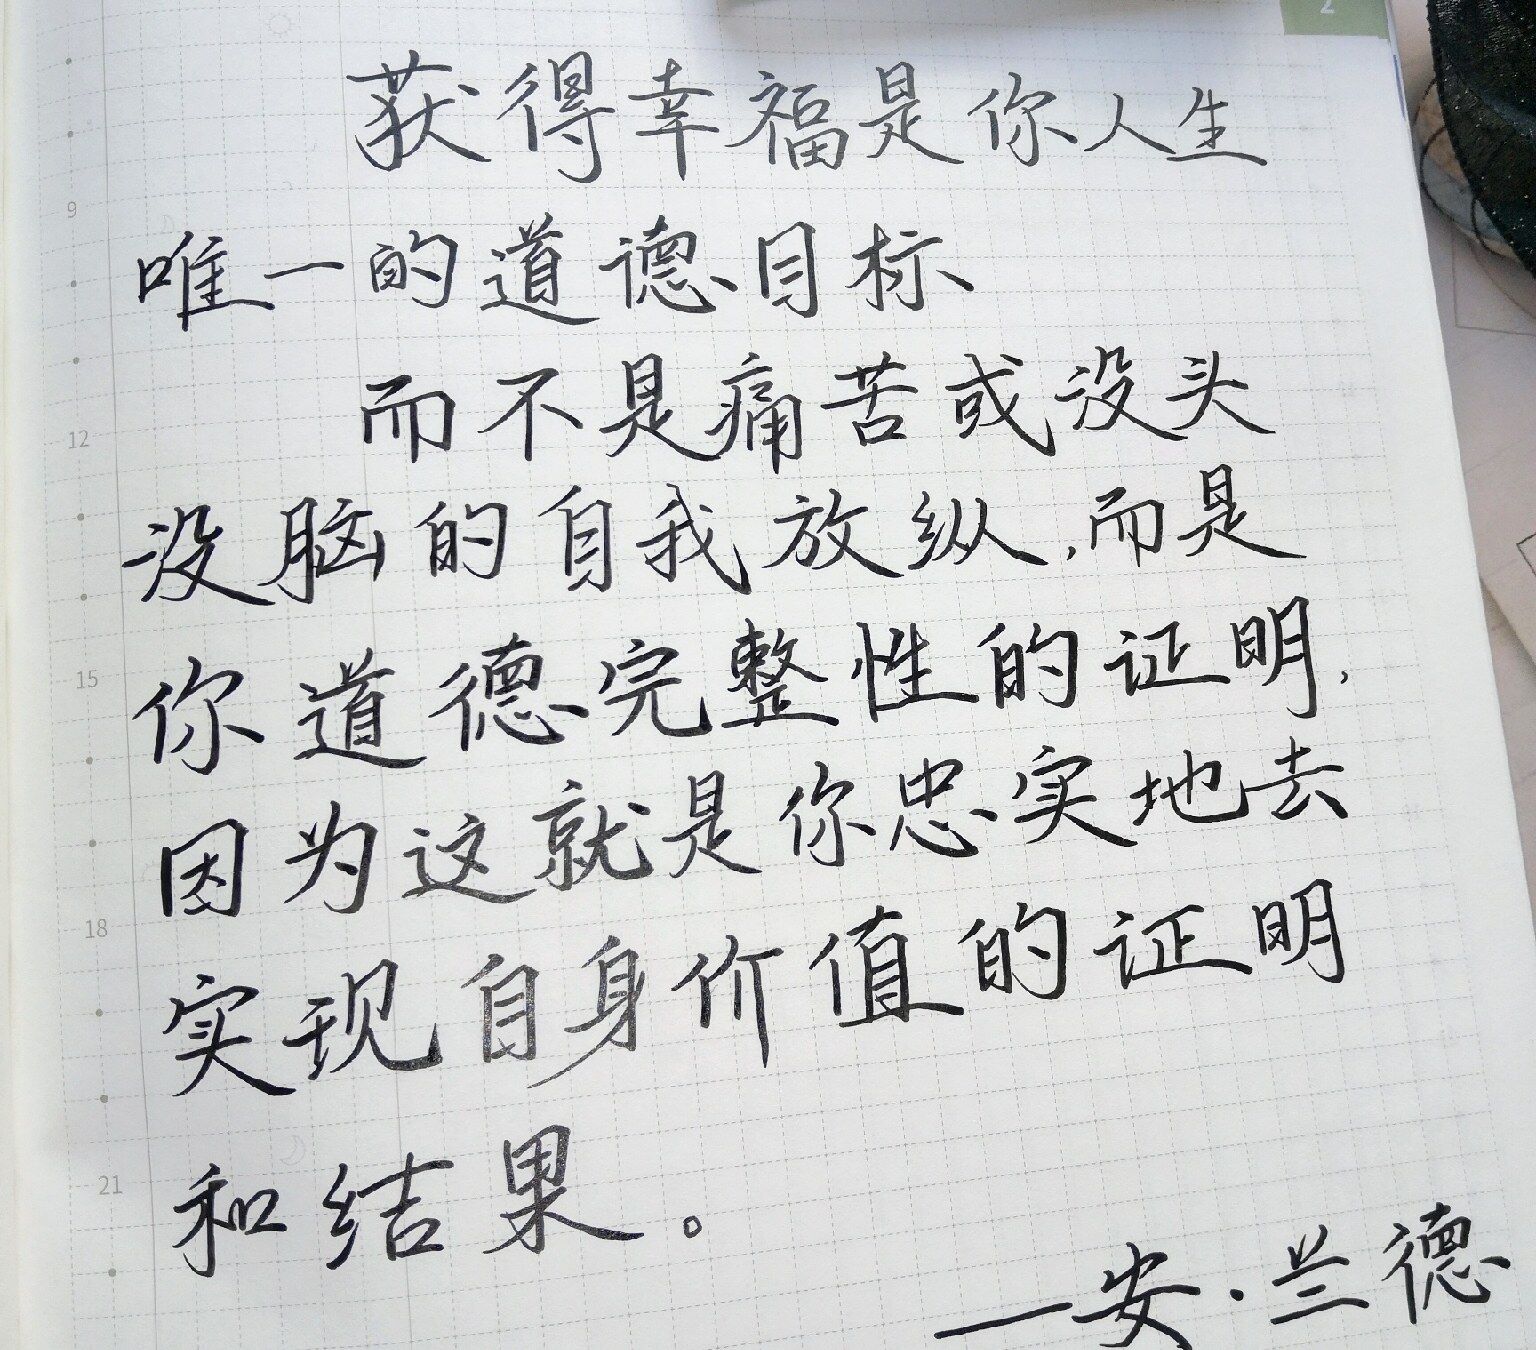 2
获得幸福是你人生
9
唯一的道德目标
而不是痛苦或没头
12
没脑的自我放纵,而是
15
你道德完整性的证明,
因为这就是你忠实地去
18
实现自身价值的证明
21
和结果。
—安·兰德